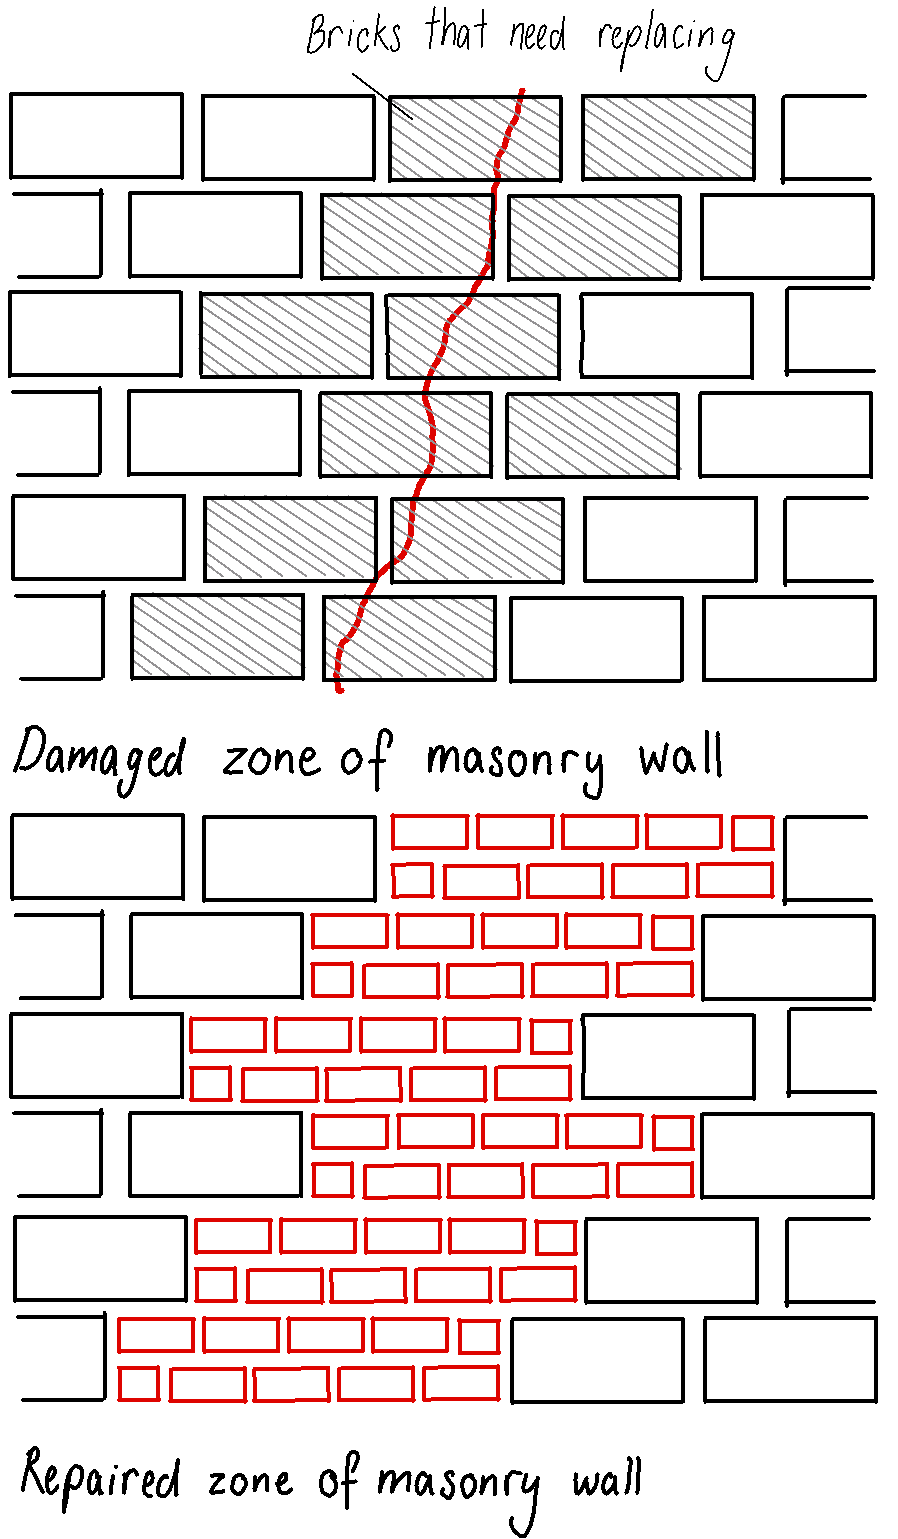 Bricks that need replacing
Damaged zone of masonry wall
Repaired zone of masonry wall